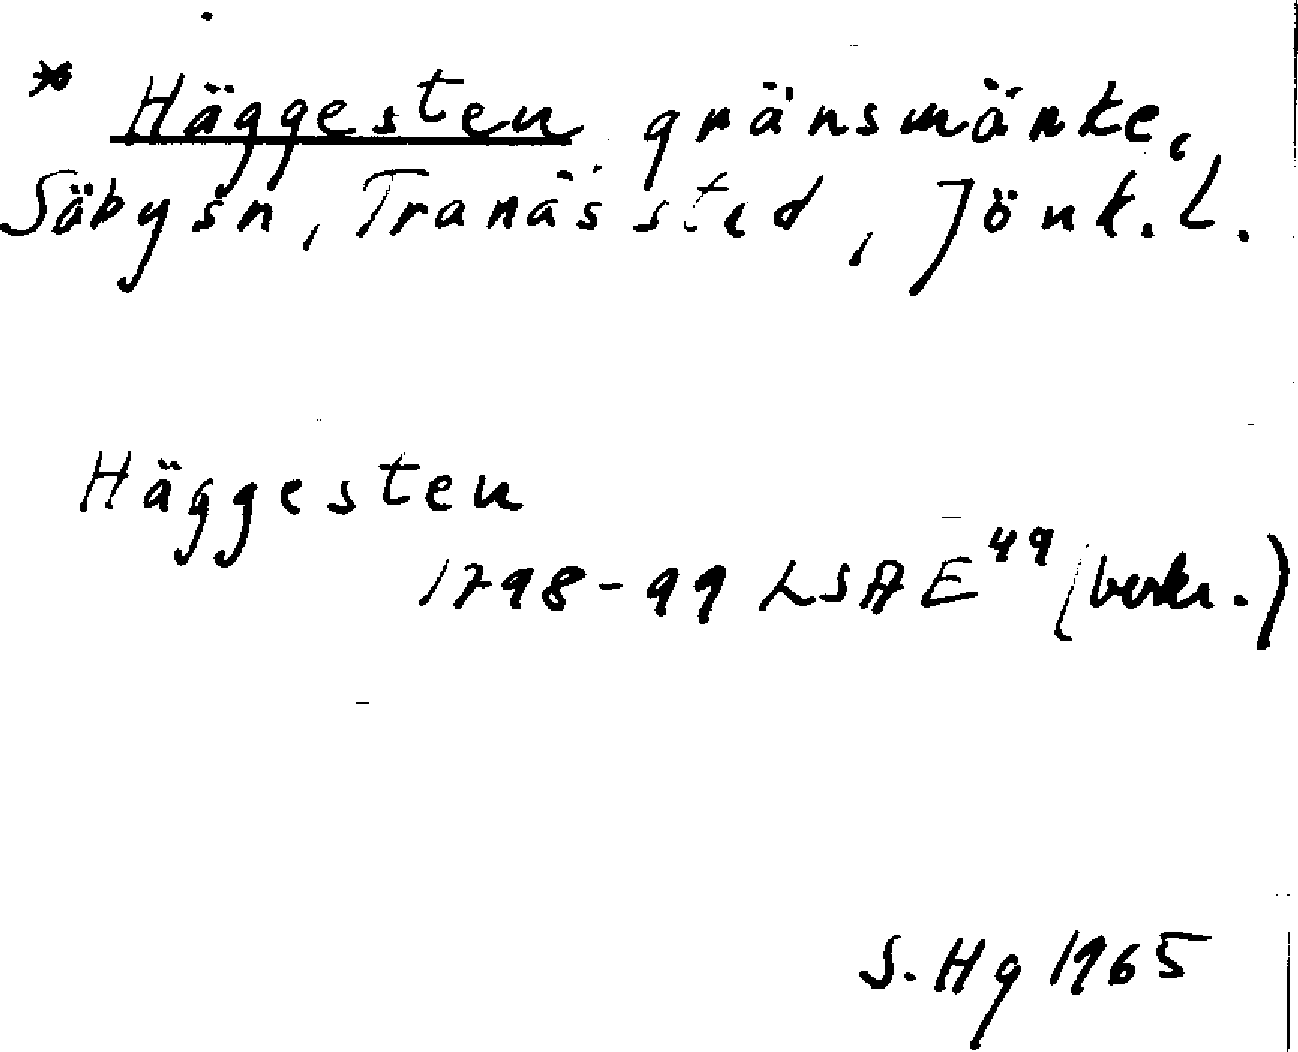 * Häggesten gränsmärke,
Säby sn, Tranås stad, Jönk. L.
Häggesten
1798-99 LSA E 49 (beskr.)
S. Hg 1965